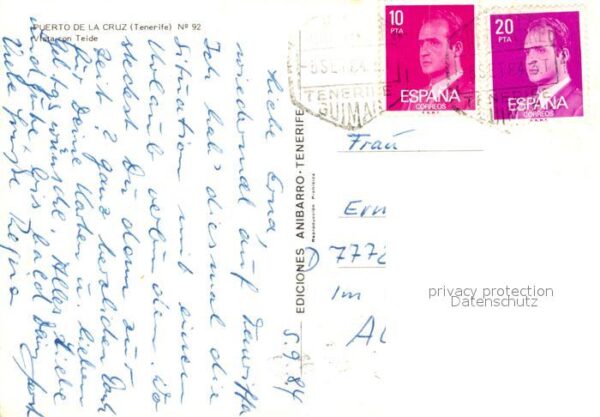 PUERTO DE LA CRUZ (Tenerife) Nº 92
Vista con Teide
5.9.84
Liebe Erna,
wiedermal auf Teneriffa
Ich hab' diesmal die
Situation mit einem
Urlaub verbunden. Wo
steckst Du denn zur
Zeit? ganz herzlichen Dank
für Deine Karten u. lieben
Alles Liebe
und Gute, bis bald
Viele Grüße Regina
EDICIONES ANIBARRO-TENERIFE
Reproducción Prohibida
10
PTA
ESPAÑA
CORREOS
20
PTA
ESPAÑA
CORREOS
TENERIFE
Frau
Ern
D 7772
Im
privacy protection
Datenschutz